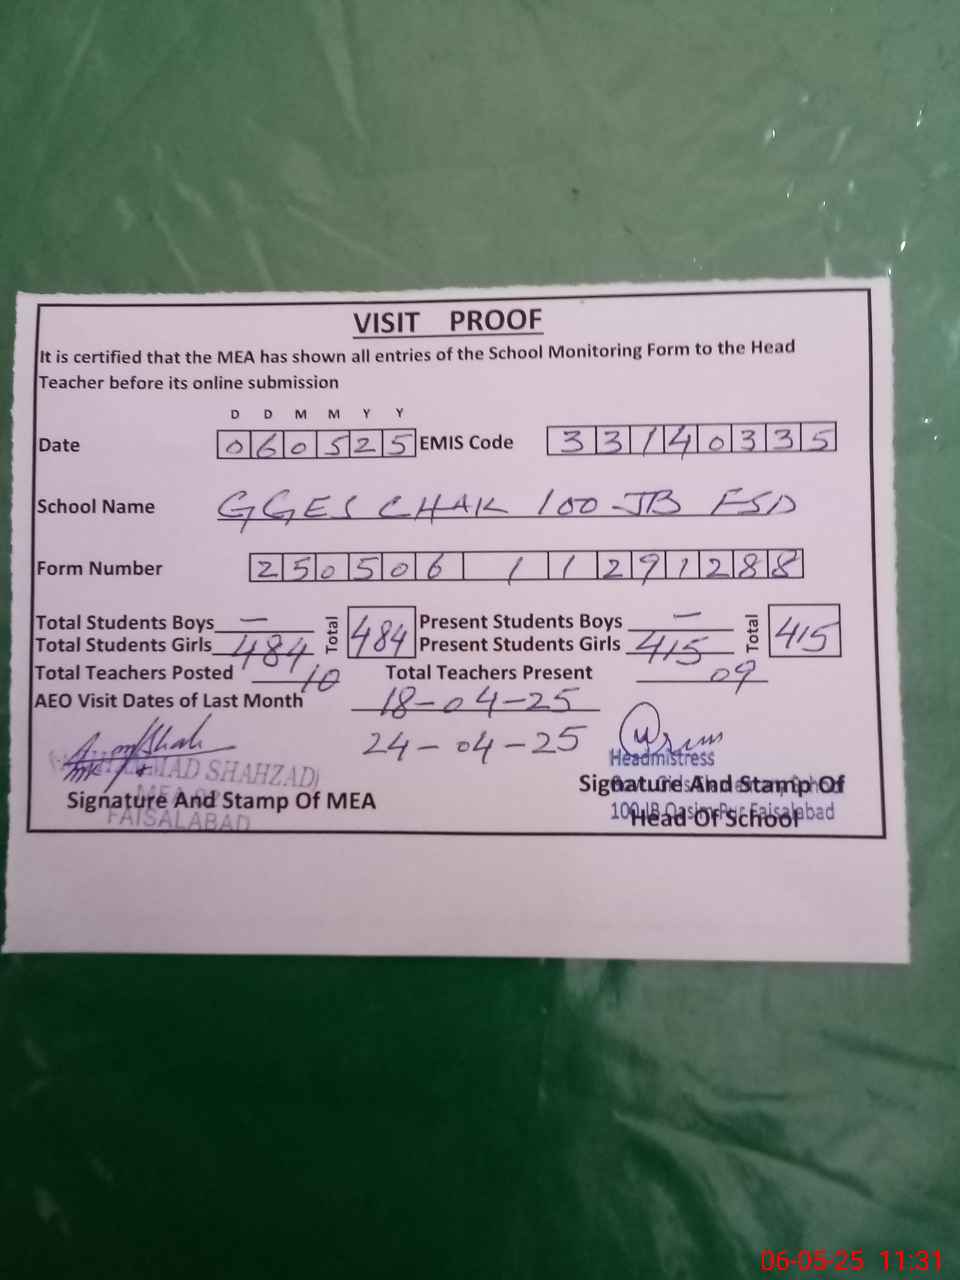 VISIT PROOF
It is certified that the MEA has shown all entries of the School Monitoring Form to the Head
Teacher before its online submission
D D M M Y Y
Date 060525 EMIS Code 33140335
School Name GGES CHAK 100 JB FSD
Form Number 250506 1 1291288
Total Students Boys — Total 484 Present Students Boys — Total 415
Total Students Girls 484 Present Students Girls 415
Total Teachers Posted 10 Total Teachers Present 09
AEO Visit Dates of Last Month 18-04-25
24-04-25
SHAHZAD)
Headmistress
Signature And Stamp Of MEA
Signature And Stamp Of
FAISALABAD
Faisalabad
Head Of School
06-05-25 11:31